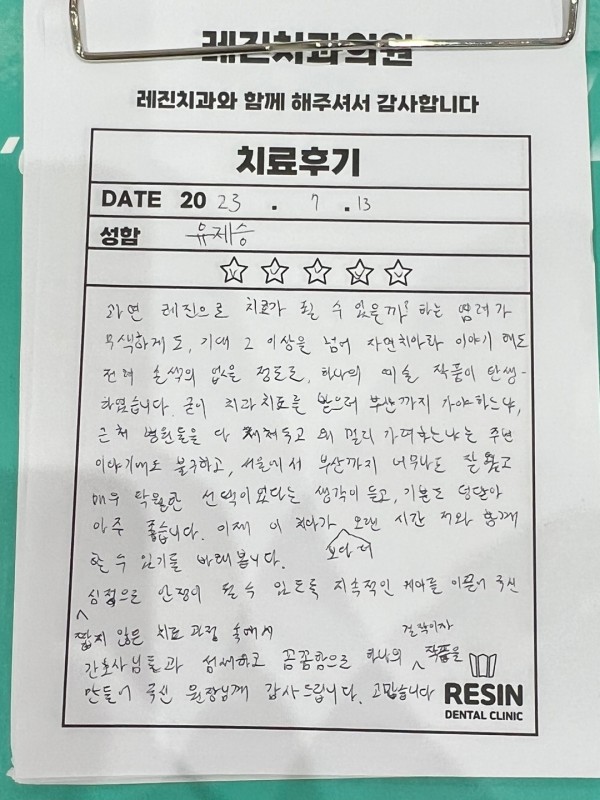 레진치과의원
레진치과와 함께 해주셔서 감사합니다
치료후기
DATE 20 23 . 7 . 13
성함 유제승
과연 레진으로 치료가 될 수 있을까? 하는 염려가
무색하게도, 기대 그 이상을 넘어 자연치아라 이야기 해도
전혀 손색이 없을 정도로, 하나의 예술 작품이 탄생-
하였습니다. 굳이 치과치료를 받으러 부산까지 가야하느냐,
근처 병원들을 다 제쳐두고 왜 멀리 가려하느냐는 주변
이야기에도 불구하고, 서울에서 부산까지 너무나도 잘 왔고
매우 탁월한 선택이었다는 생각이 들고, 기분도 덩달아
아주 좋습니다. 이제 이 치아가 오랜 시간 저와 함께
보다 더
할 수 있기를 바래봅니다.
심적으로 안정이 될 수 있도록 지속적인 케어를 이끌어 주신
쉽지 않은 치료 과정 속에서
걸작이자
간호사님들과 섬세하고 꼼꼼함으로 하나의 작품을
만들어 주신 원장님께 감사드립니다. 고맙습니다
RESIN
DENTAL CLINIC